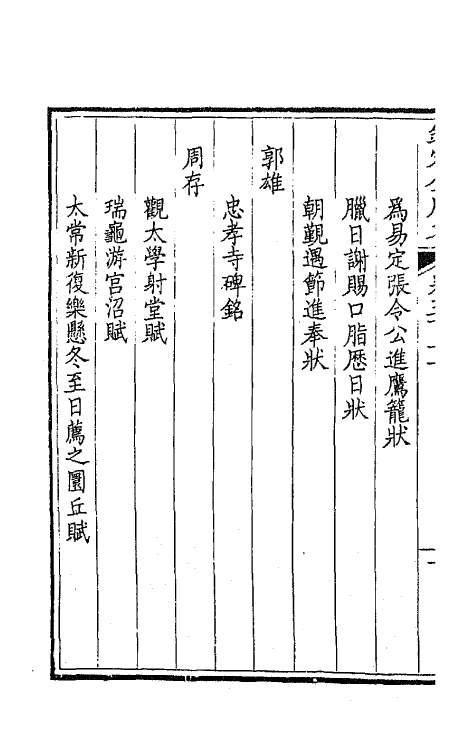 爲易定張令公進鷹籠狀
臘日謝賜口脂歷日狀
朝覲遇節進奉狀
郭雄
忠孝寺碑銘
周存
觀太學射堂賦
瑞龜游宫沼賦
太常新復樂懸冬至日薦之圜丘賦